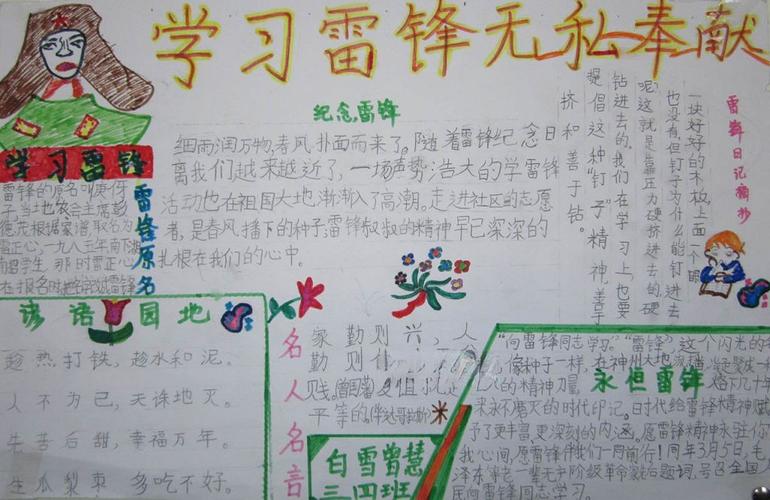 学习雷锋无私奉献
学习雷锋
雷锋原名
雷锋的原名叫庚伢
子,当地农会主席彭
德茂根据家谱取名为
雷正心,一九
留学生,那时雷正心
在报名时
纪念雷锋
细雨润万物,春风扑面而来了。随着雷锋纪念日
离我们越来越近了,一场声势浩大的学雷锋
活动也在祖国大地渐渐入了高潮。走进社区的志愿
者,是春风播下的种子,雷锋叔叔的精神早已深深的
扎根在我们的心中。
雷锋日记摘抄
一块好好的木板,上面一个眼
也没有,但钉子为什么能钉进去
呢?这就是靠压力硬挤进去的,硬
钻进去的。我们在学习上,也要
提倡这种“钉子”精神,善于
挤和善于钻。
谚语园地
趁热打铁,趁水和泥。
人不为己,天诛地灭。
先苦后甜,幸福万年。
生瓜梨枣多吃不好。
名人名言
家勤则兴,人
勤则
平等的。
白雪曾慧
三四班
永恒雷锋
“向雷锋同志学习。”“雷锋”,这个闪光的
像种子一样,在神州大地
的精神力量,
来永不磨灭的时代印记。时代给雷锋精神赋
予了更丰富,更深刻的内涵。愿雷锋精神永驻你
我心间,愿雷锋伴我们一同前行!同年3月5日,毛
泽东等老一辈无产阶级革命家后题词,号召全国人
民向雷锋同志学习。